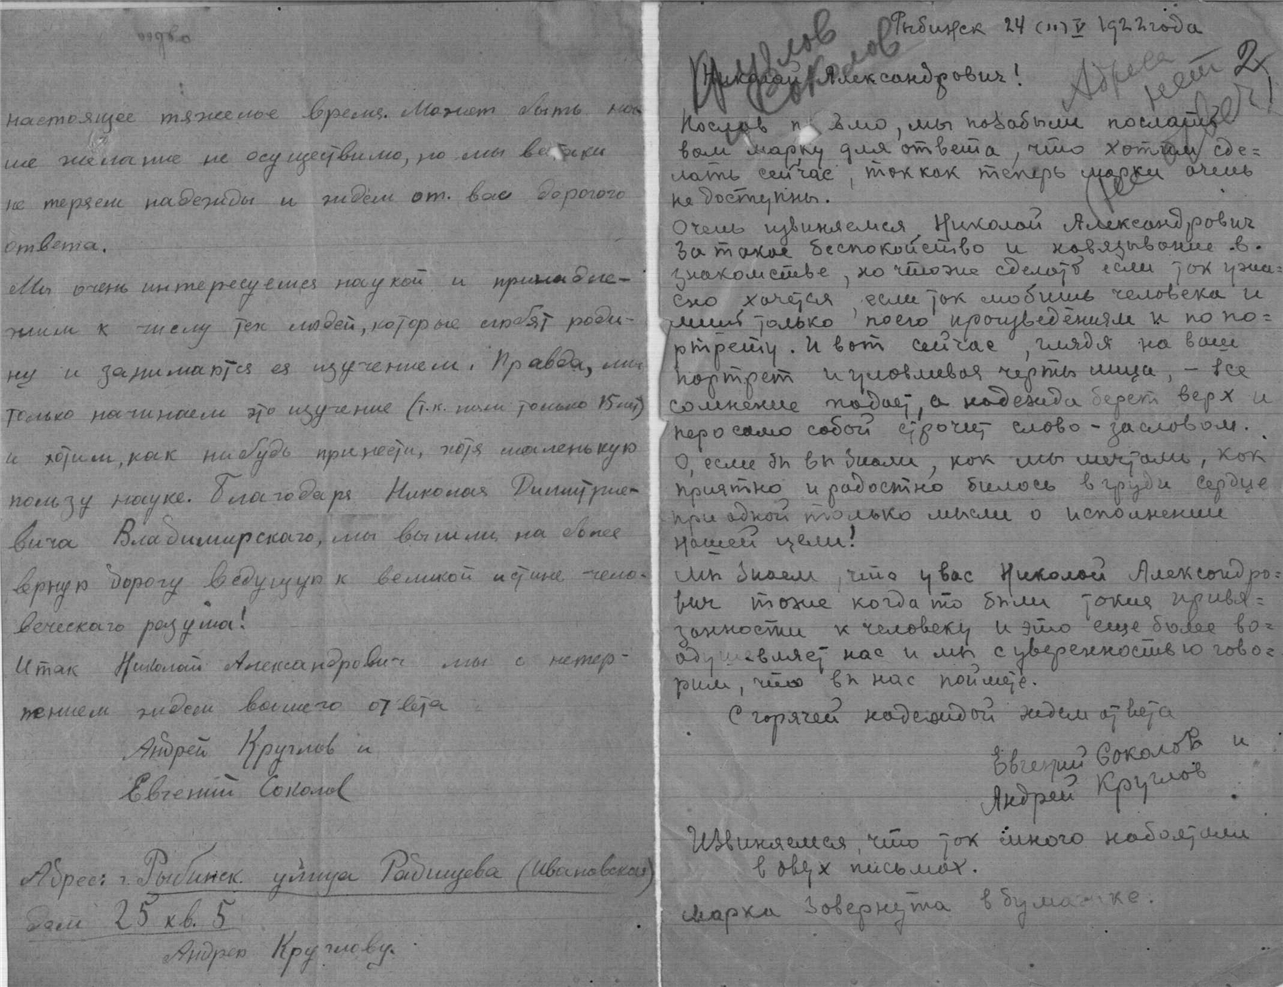 настоящее тяжелое время. Может быть на-
ше желание не осуществимо, но мы всетаки
не теряем надежды и ждем от вас дорогого
ответа.
Мы очень интересуемся наукой и принадле-
жим к числу тех людей, которые любят роди-
ну и занимаются ея изучением. Правда, мы
только начинаем это изучение (т.к. нам только 15 лет)
и хотим, как нибудь принести, хотя маленькую
пользу науке. Благодаря Николая Димитрие-
вича Владимирскаго, мы вышли на более
верную дорогу ведущую к великой истине чело-
веческаго разума!
Итак Николай Александрович мы с нетер-
пением ждем вашего ответа
Андрей Круглов и
Евгений Соколов
Адрес: г. Рыбинск улица Радищева (Ивановская)
дом 25 кв. 5
Андрею Круглову.
Рыбинск 24 (11) V 1922 года
Круглов
Соколов
Адреса
нет
2
Николай Александрович!
Послав письмо, мы позабыли послать
вам марку для ответа, что хотим сде=
лать сейчас, так как теперь марки очень
не доступны.
Очень извиняемся, Николай Александрович
за такое беспокойство и навязывание в
знакомстве, но чтоже сделать если так ужа=
сно хочется, если так любишь человека и
лишь только по его произведениям и по по=
ртрету. И вот сейчас, глядя на ваш
портрет и уловливая черты лица, – все
сомнение падает, а надежда берет верх и
перо само собой строчит слово – за словом.
О, если бы вы знали, как мы мечтали, как
приятно и радостно билось в груди сердце
при одной только мысли о исполнении
нашей цели!
Мы знаем, что у вас Николай Александро=
вич тоже когда то были такие привя=
занности к человеку и это еще более во=
одушевляет нас и мы с уверенностью гово=
рим, что вы нас поймете.
С горячей надеждой ждем ответа
Евгений Соколов и
Андрей Круглов
Извиняемся, что так много наболтали
в двух письмах.
Марка завернута в бумажке.